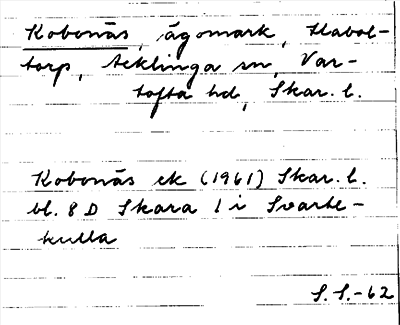 Kobonäs, ägomark, Habol-
torp, Acklinga sn, Var-
tofta hd, Skar. l.
Kobonäs ek (1961) Skar. l.
bl. 8 D Skara 1 i Svarte-
kulla
S. S.-62